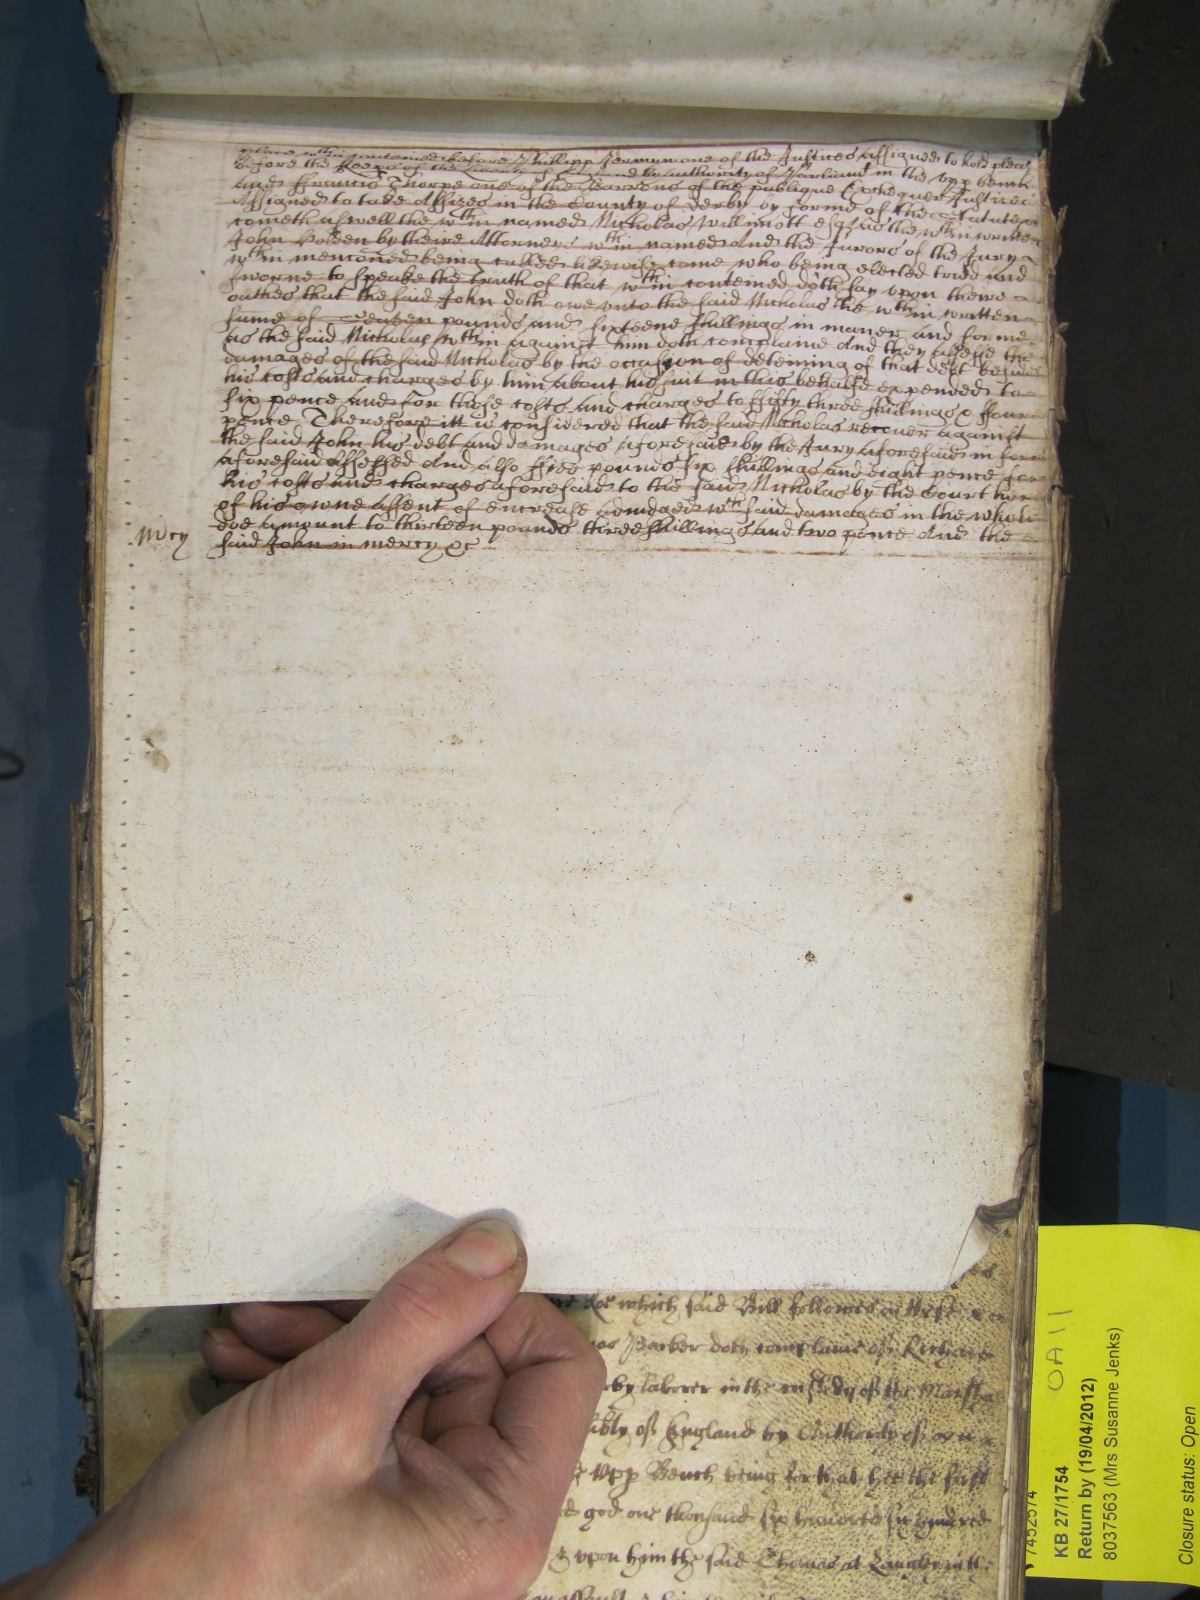 place within contened before Phillipp Jermyn one of the Justices assigned to hold pleas
before the Keepers of the Liberty of England by authority of Parliamt in the upp bench
and Francis Thorpe one of the Barrons of the publique Excheqr Justices
Assigned to take Assizes in the County of Derby by forme of the Statute &c
cometh aswell the wthin named Nicholas Willimott esqr as the wthin written
John by theire Attorneys wthin named And the Jurors of the Jury
wthin mencioned being called likewise come who being elected tried and
sworne to speake the truth of that wthin contened doth say upon theire
oathes that the said John doth owe unto the said Nicholas the wthin written
sume of pounds and sixteene shillings in maner and forme
as the said Nicholas wthin against him doth complaine And they assesse the
damages of the said Nicholas by the occasyon of deteining of that debt besides
his costs and charges by him about his suit in this behalfe expended to
six pence and for those costs and charges to fifty three shillings & foure
pence Therefore itt is considered that the said Nicholas recover against
the said John his debt and damages aforesaid by the Jury aforesaid in forme
aforesaid assessed And also pounds six shillings and eight pence for
his costs and charges aforesaid to the said Nicholas by the Court here
of his owne assent of encrease adiudged wch said damages in the whole
doe amount to thirteen pounds three shillings and two pence And the
Mcy
said John in mercy &c
which said Bill followes in these
Barker doth complaine of Richard
laborer in the custody of the Marshal
of England by Authority of
Upp Bench being for that hee the said
god one thousand six hundred
upon him the said Thomas at
7452574
OA11
KB 27/1754
Return by (19/04/2012)
8037563 (Mrs Susanne Jenks)
Closure status: Open